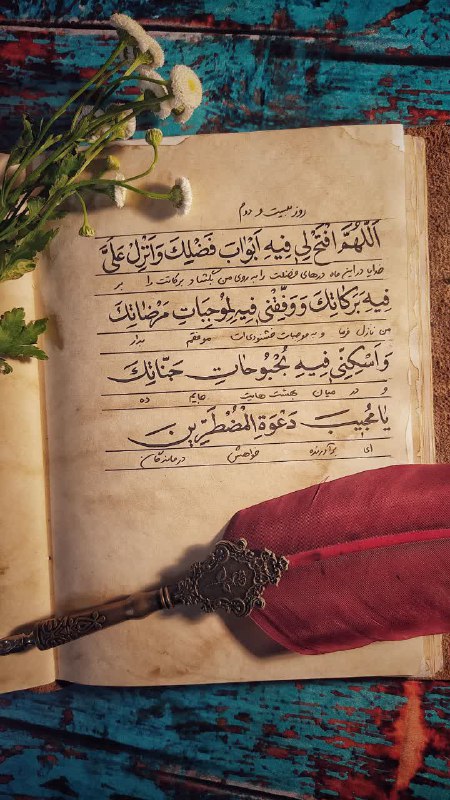 روز بیست و دوم
اَللّٰهُمَّ افْتَحْ لي فِيهِ اَبْوابَ فَضْلِكَ وَاَنْزِلْ عَلَيَّ
خدایا در این ماه درهای فضلت را به روی من بگشا و برکاتت را بر
فِيهِ بَرَكاتِكَ وَوَفِّقْنِي فِيهِ لِمُوجِباتِ مَرْضاتِكَ
من نازل فرما و به موجبات خشنودی‌ات موفقم بدار
وَاَسْكِنِّي فِيهِ بُحْبُوحاتِ جَنّاتِكَ
و در میان بهشت هایت جایم ده
يا مُجِيبَ دَعْوَةِ الْمُضْطَرِّينَ
ای برآورنده خواهش درماندگان